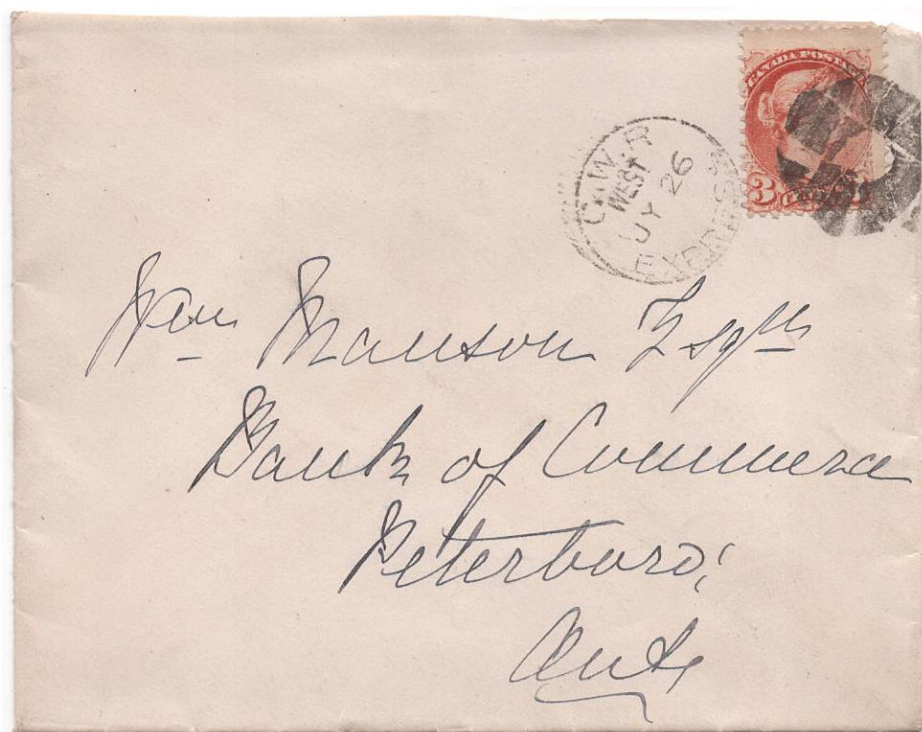 CANADA POSTAGE
3 CENTS
G.W.R
WEST
JY 26
EXPRESS
Wm Manson Esqre
Bank of Commerce
Peterboro;
Ont,